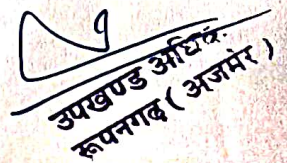 उपखण्ड अधि.
रूपनगढ़ ( अजमेर )